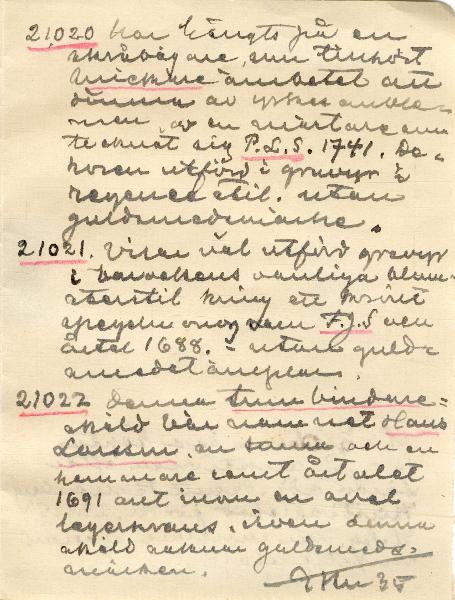 21,020 har hängts på en
skråbägare, som tillhört
snickare ämbetet att
döma av yrkesemble-
men, av en mästare som
tecknat sig P.L.S. 1741. De-
koren utförd i gravyr i
regence stil. utan
guldsmedsmärke.
21021. Visar väl utförd gravyr
i barockens vanliga blom-
sterstil kring ett krönt
spegelmonogram F.J.S och
årtal 1688. - utan guld-
smedstämplar.
21022 denna tunnbindare-
sköld bär namnet Hans
Larsson, en tunna och en
hammare samt årtalet
1691 allt inom en oval
lagerkrans. även denna
sköld saknar guldsmeds-
märken.
35